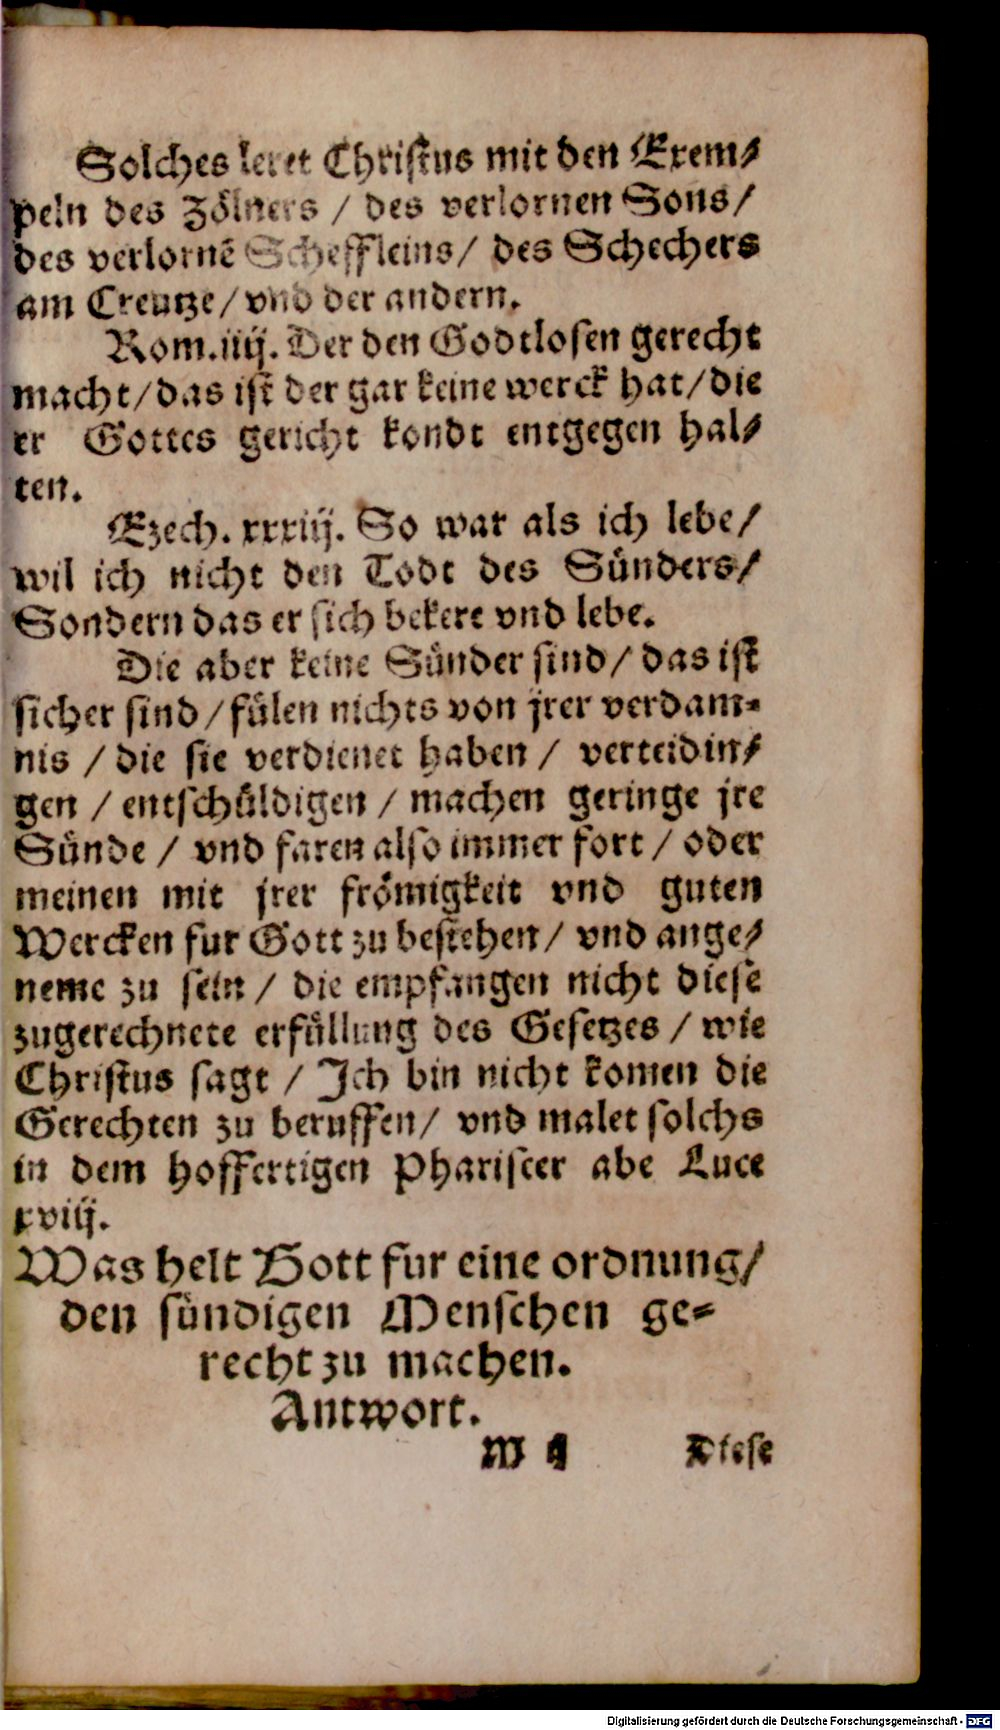 Solches leret Christus mit den Exem⸗
peln des Zölners / des verlornen Sons /
des verlornē Scheffleins / des Schechers
am Creutze / vnd der andern.
Rom. iiij. Der den Godtlosen gerecht
macht / das ist der gar keine werck hat / die
er Gottes gericht kondt entgegen hal⸗
ten.
Ezech. xxxiij. So war als ich lebe /
wil ich nicht den Todt des Sünders /
Sondern das er sich bekere vnd lebe.
Die aber keine Sünder sind / das ist
sicher sind / fülen nichts von jrer verdam⸗
nis / die sie verdienet haben / verteidin⸗
gen / entschüldigen / machen geringe jre
Sünde / vnd faren also immer fort / oder
meinen mit jrer frömigkeit vnd guten
Wercken fur Gott zu bestehen / vnd ange⸗
neme zu sein / die empfangen nicht diese
zugerechnete erfüllung des Gesetzes / wie
Christus sagt / Ich bin nicht komen die
Gerechten zu beruffen / vnd malet solchs
in dem hoffertigen Phariseer abe Luce
xviij.
Was helt Gott fur eine ordnung /
den sündigen Menschen ge⸗
recht zu machen.
Antwort.
M Diese
Digitalisierung gefördert durch die Deutsche Forschungsgemeinschaft - DFG